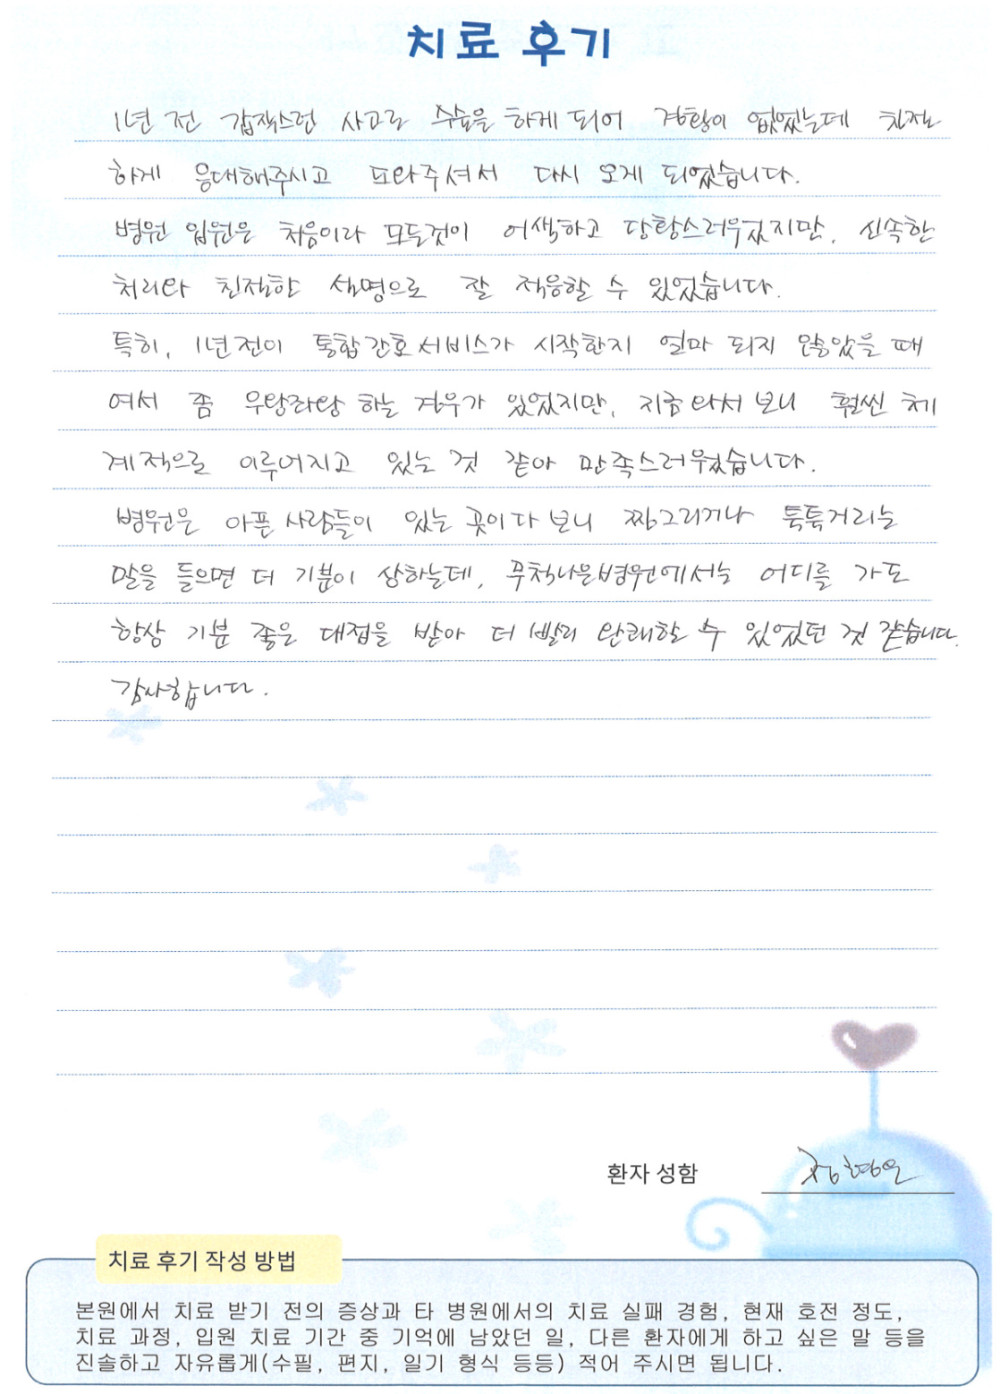 치료 후기
1년 전 갑작스런 사고로 수술을 하게 되어 경황이 없었는데 친절
하게 응대해주시고 도와주셔서 다시 오게 되었습니다.
병원 입원은 처음이라 모든것이 어색하고 당황스러우었지만, 신속한
처리와 친절한 설명으로 잘 적응할 수 있었습니다.
특히, 1년전이 통합간호서비스가 시작한지 얼마 되지 않았을 때
여서 좀 우당좌당 하는 경우가 있었지만, 지금 와서 보니 훨씬 체
계적으로 이루어지고 있는 것 같아 만족스러웠습니다.
병원은 아픈 사람들이 있는 곳이다 보니 찡그리거나 툭툭거리는
말을 들으면 더 기분이 상하는데, 무척나은병원에서는 어디를 가도
항상 기분 좋은 대접을 받아 더 빨리 완쾌할 수 있었던 것 같습니다.
감사합니다.
환자 성함
치료 후기 작성 방법
본원에서 치료 받기 전의 증상과 타 병원에서의 치료 실패 경험, 현재 호전 정도,
치료 과정, 입원 치료 기간 중 기억에 남았던 일, 다른 환자에게 하고 싶은 말 등을
진솔하고 자유롭게(수필, 편지, 일기 형식 등등) 적어 주시면 됩니다.